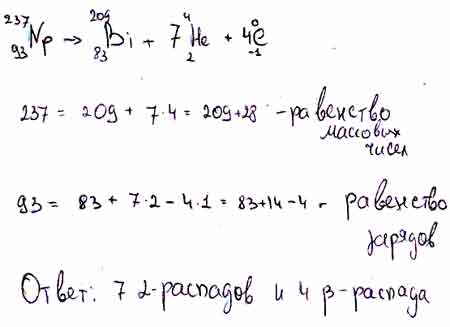 ²³⁷₉₃Np → ²⁰⁹₈₃Bi + 7 ⁴₂He + 4 ⁰₋₁e
237 = 209 + 7·4 = 209+28 - равенство
массовых
чисел
93 = 83 + 7·2 - 4·1 = 83+14-4 - равенство
зарядов
Ответ: 7 α-распадов и 4 β-распада